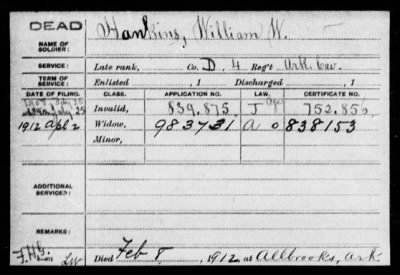 DEAD
NAME OF SOLDIER: Hankins, William W.
SERVICE: Late rank, Co. D, 4 Reg't Ark. Cav.
TERM OF SERVICE: Enlisted , 1 Discharged , 1
DATE OF FILING. CLASS. APPLICATION NO. LAW. CERTIFICATE NO.
Invalid, 839.875 J 752.856
1912 Apl 2 Widow, 983731 a o 838153
Minor,
ADDITIONAL SERVICES:
REMARKS:
Died Feb 8, 1912, at Allbrooks, Ark.